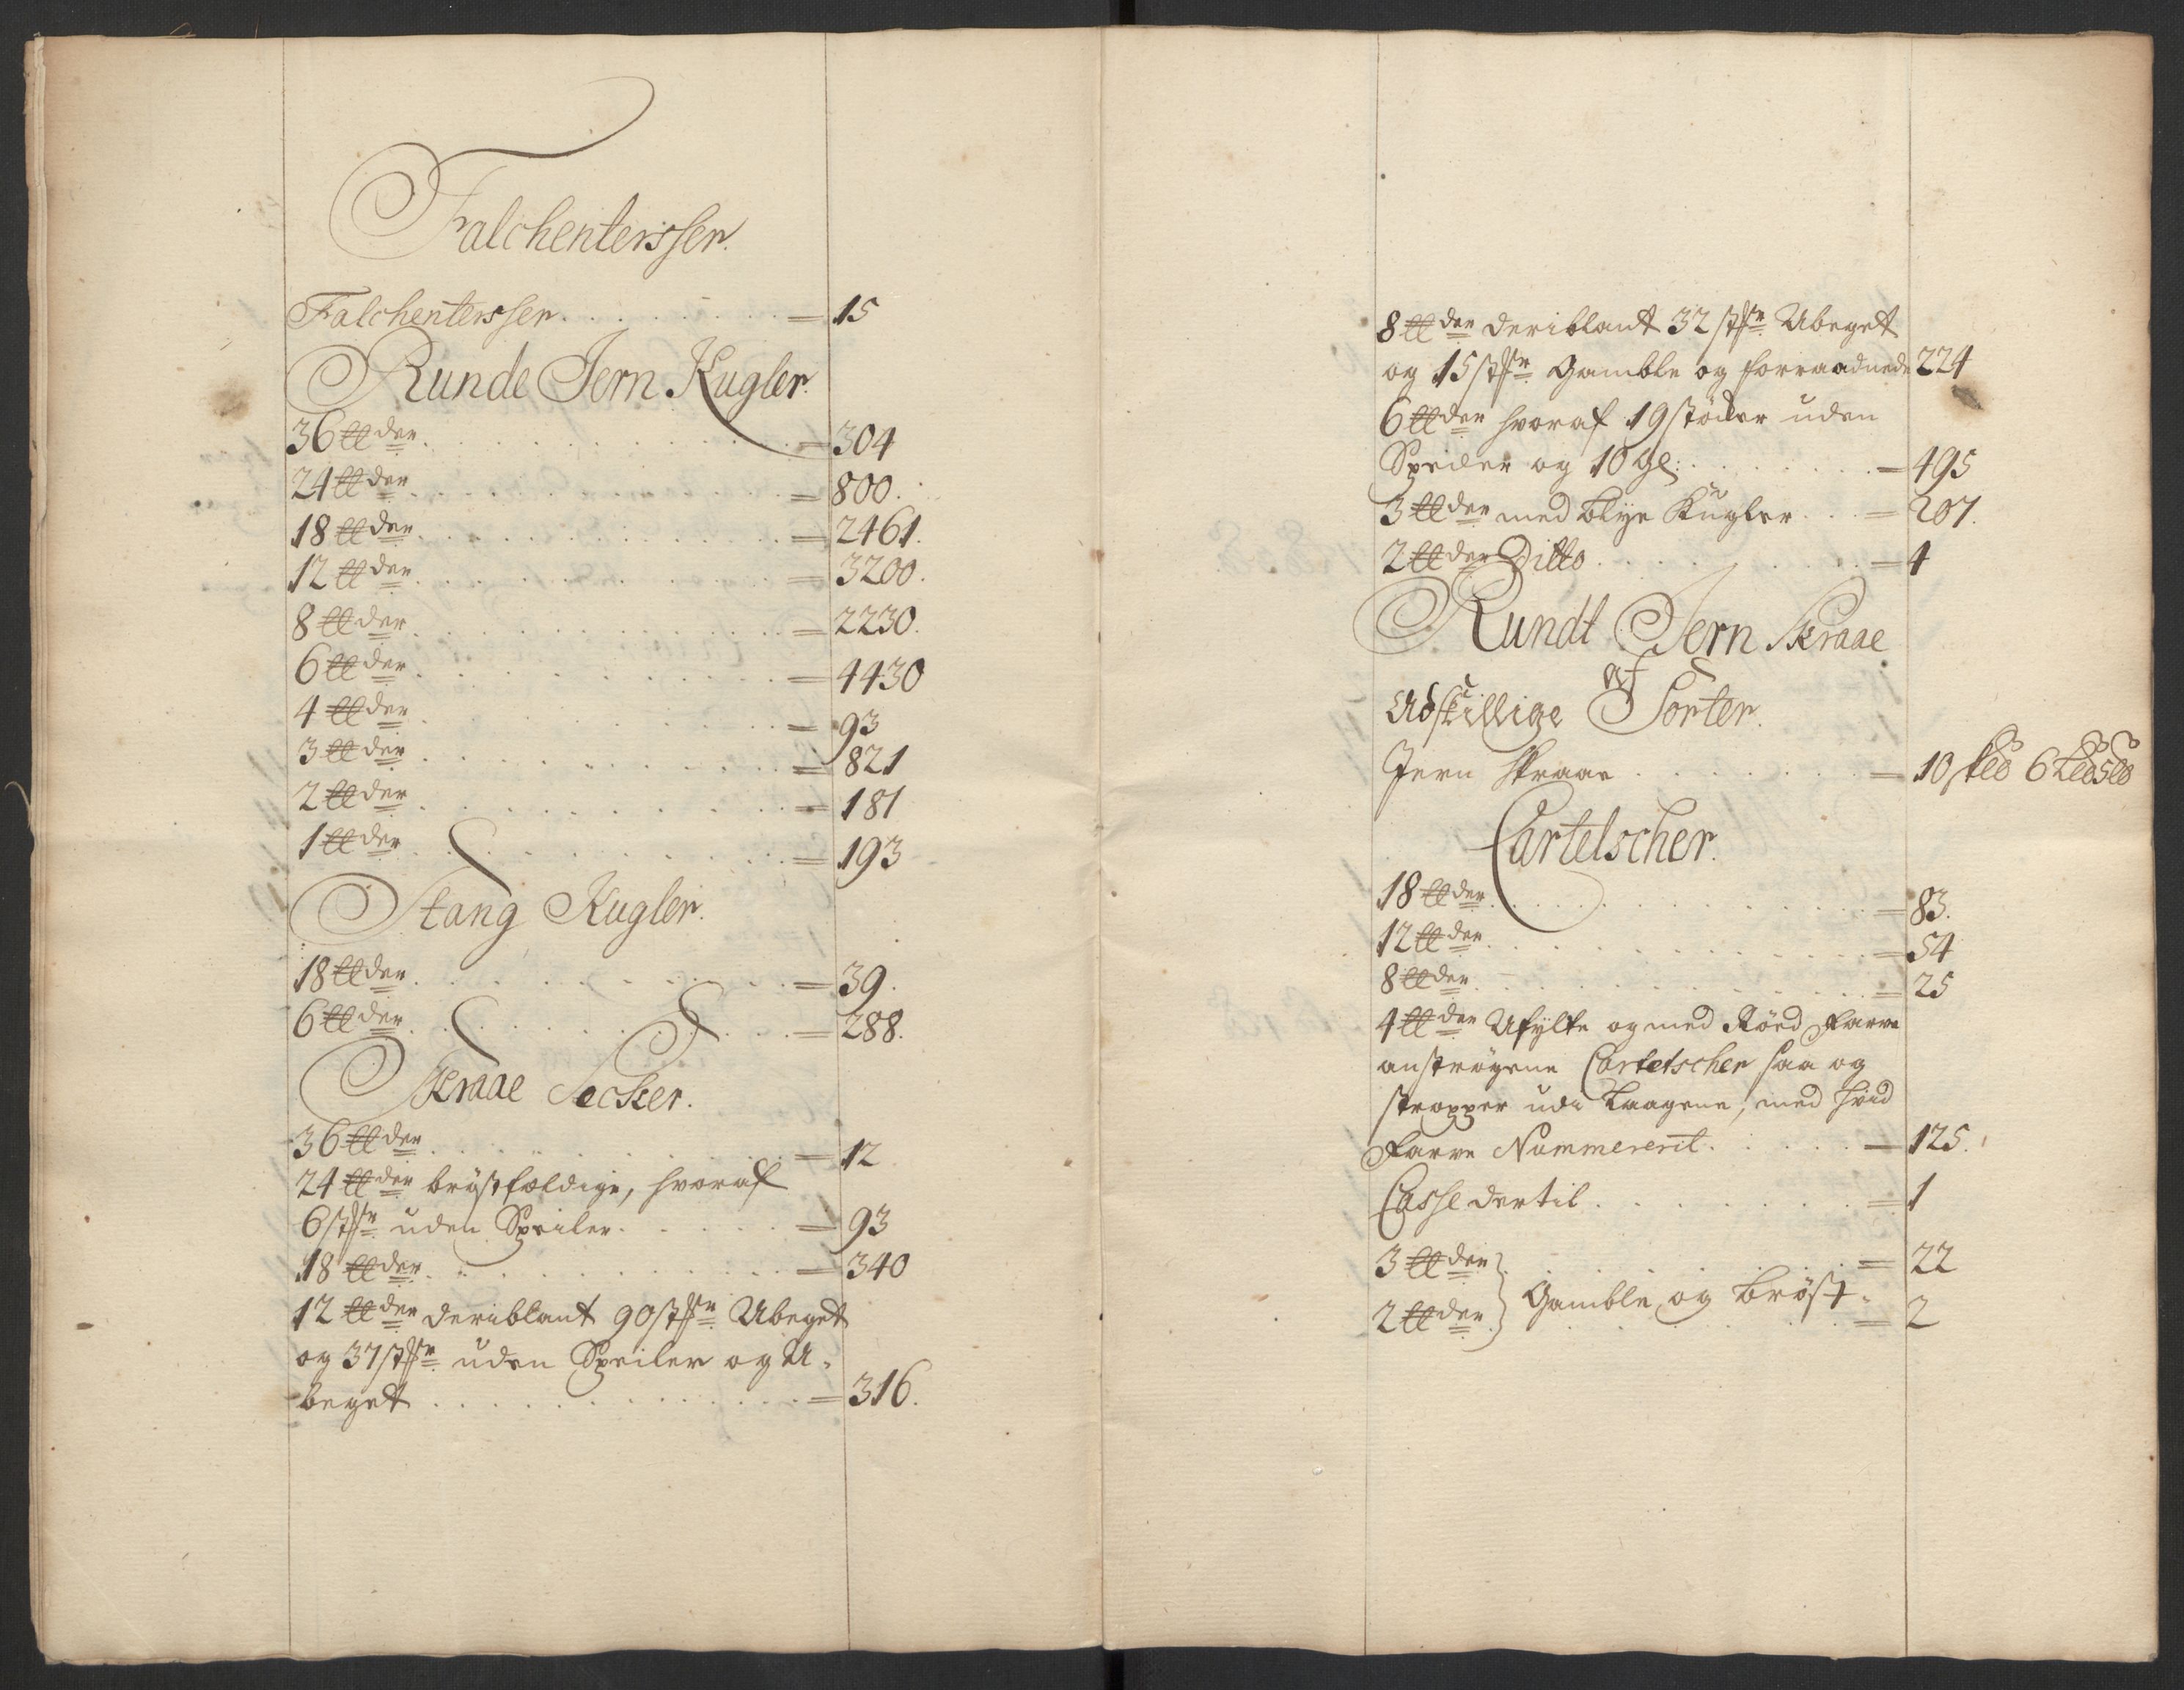 Falchentersser.
Falchentersser. = 15
Runde Jern Kugler.
36 ℔der = 304
24 ℔der = 800.
18 ℔der = 2461.
12 ℔der = 3200.
8 ℔der = 2230.
6 ℔der = 4430
4 ℔der = 93
3 ℔der = 821
2 ℔der = 181
1 ℔der = 193
Stang Kugler.
18 ℔der = 39.
6 ℔der = 288.
Skraae Secker.
36 ℔der = 12
24 ℔der brøstfældige, hvoraf
6 stkr uden Speiler = 93
18 ℔der = 340
12 ℔der deriblant 90 stkr Ubeget
og 37 stkr uden Speiler og U-
beget = 316.
8 ℔der deriblant 32 stkr Ubeget
og 15 stkr Gamble og forraadnede 224
6 ℔der hvoraf 19 støcker uden
Speiler og 10 Gl: = 495
3 ℔der med blye Kugler = 207.
2 ℔der Ditto = 4
Rundt Jern Skraae
af
Adskillige Sorter.
Jern Skraae = 10
Cartetscher.
18 ℔der = 83.
12 ℔der = 54
8 ℔der = 25
4 ℔der Ufylte og med Röed farve
anstrøgene Cartetscher saa og
stropper udi Laagene, med hvid
farve Nummererit = 125.
Casse dertil = 1
3 ℔der = 22
Gamble og brøst.
2 ℔der = 2